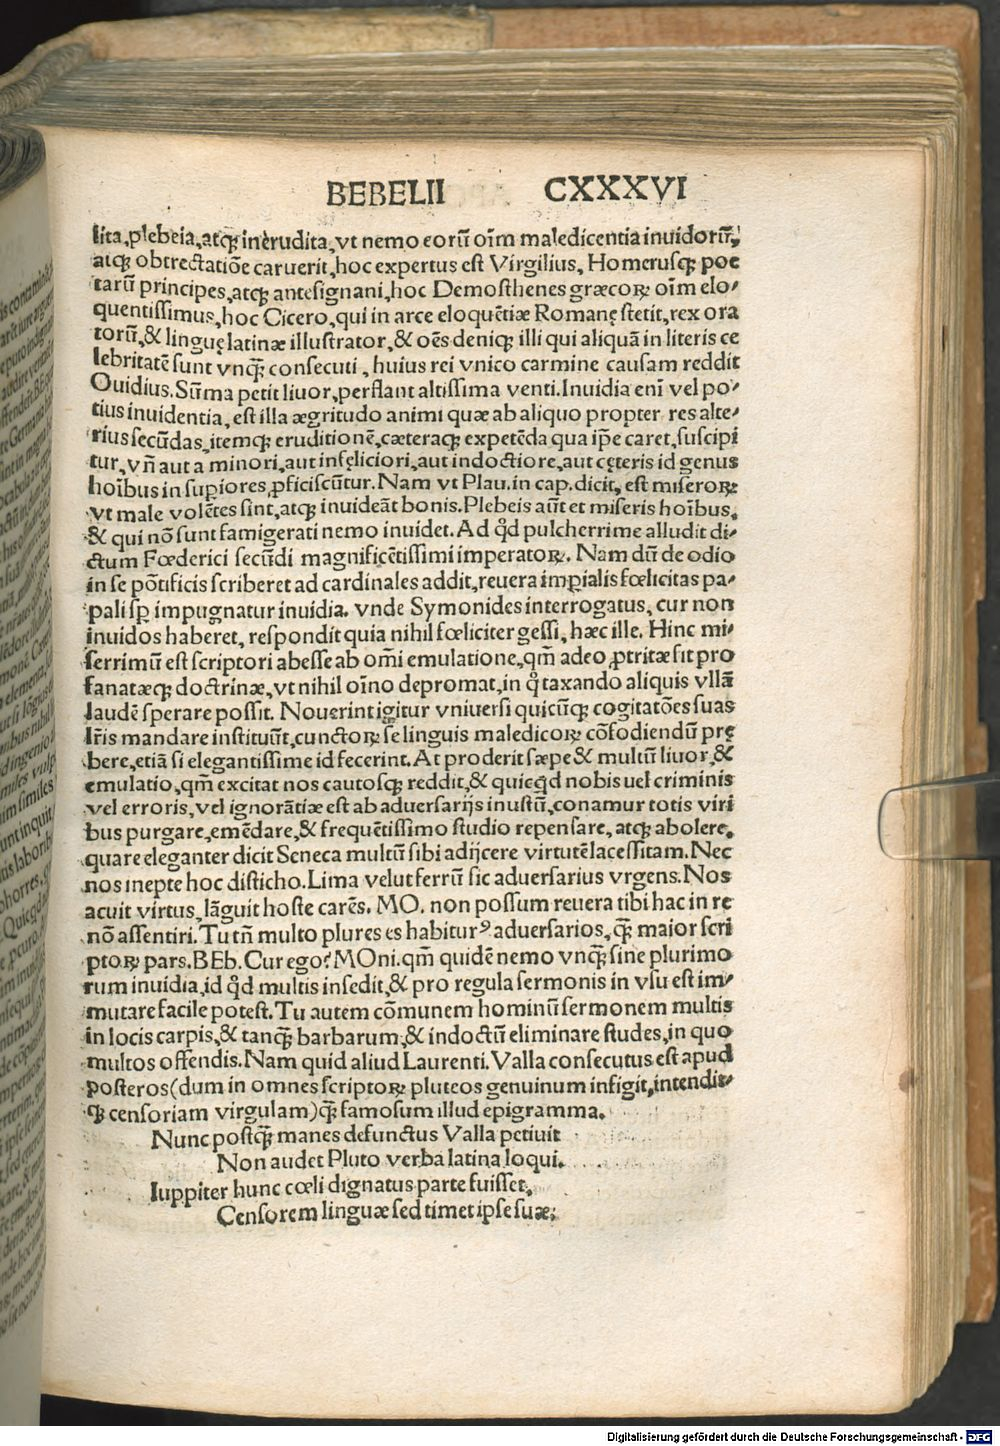 BEBELII CXXXVI
lita,plebeia,atqꝫ inerudita,vt nemo eorū oīm maledicentia inuidorū,
atqꝫ obtrectatiōe caruerit,hoc expertus est Virgilius, Homerusqꝫ poe
tarū principes,atqꝫ antesignani,hoc Demosthenes græcoꝝ oīm elo⸗
quentissimus,hoc Cicero,qui in arce eloquētiæ Romanę stetit,rex ora
torū,& linguę latinæ illustrator,& oēs deniqꝫ illi qui aliquā in literis ce
lebritatē sunt vnqꝫ̄ consecuti, huius rei vnico carmine causam reddit
Ouidius.Sūma petit liuor,perflant altissima venti.Inuidia enī vel po⸗
tius inuidentia,est illa ægritudo animi quæ ab aliquo propter res alte⸗
rius secūdas,itemqꝫ eruditionē,cæteraqꝫ expetēda qua ip̄e caret,suscipi
tur,vñ aut a minori,aut infęliciori,aut indoctiore,aut cęteris id genus
hoībus in sup̄iores,ꝓficiscūtur.Nam vt Plau.in cap.dicit, est miseroꝝ
vt male volētes sint,atqꝫ inuideāt bonis.Plebeis aūt et miseris hoībus,
& qui nō sunt famigerati nemo inuidet.Ad qd̄ pulcherrime alludit di⸗
ctum Fœderici secūdi magnificētissimi imperatoꝝ. Nam dū de odio
in se pōtificis scriberet ad cardinales addit,reuera imp̄ialis fœlicitas pa⸗
pali sp̄ impugnatur inuidia. vnde Symonides interrogatus, cur non
inuidos haberet, respondit quia nihil fœliciter gessi, hæc ille. Hinc mi⸗
serrimū est scriptori abesse ab om̄i emulatione,qm̄ adeo ꝓtritæ sit pro
fanatæqꝫ doctrinæ,vt nihil oīno depromat,in q̊ taxando aliquis vllā
laudē sperare possit. Nouerint igitur vniuersi quicūqꝫ cogitatōes suas
lr̄is mandare instituūt,cunctoꝝ se linguis maledicoꝝ cōfodiendū prę
bere,etiā si elegantissime id fecerint.At proderit sæpe & multū liuor,&
emulatio,qm̄ excitat nos cautosqꝫ reddit,& quicqd nobis uel criminis
vel erroris,vel ignorātiæ est ab aduersarijs inustū,conamur totis viri
bus purgare,emēdare,& frequētissimo studio repensare, atqꝫ abolere,
quare eleganter dicit Seneca multū sibi adijcere virtutē lacessitam.Nec
nos inepte hoc disticho.Lima velut ferrū sic aduersarius vrgens.Nos
acuit virtus,lāguit hoste carēs. MO. non possum reuera tibi hac in re
nō assentiri.Tu tñ multo plures es habiturꝰ aduersarios,qꝫ̄ maior scri
ptoꝝ pars.BEb.Cur ego? MOni.qm̄ quidē nemo vnqꝫ̄ sine plurimo
rum inuidia,id qd̄ multis insedit,& pro regula sermonis in vsu est im⸗
mutare facile potest.Tu autem cōmunem hominū sermonem multis
in locis carpis,& tanqꝫ̄ barbarum,& indoctū eliminare studes,in quo
multos offendis.Nam quid aliud Laurenti.Valla consecutus est apud
posteros(dum in omnes scriptoꝝ pluteos genuinum infigit,intendit⸗
qꝫ censoriam virgulam)qꝫ̄ famosum illud epigramma.
Nunc postqꝫ̄ manes defunctus Valla petiuit
Non audet Pluto verba latina loqui.
Iuppiter hunc cœli dignatus parte fuisset,
Censorem linguæ sed timet ipse suæ;
Digitalisierung gefördert durch die Deutsche Forschungsgemeinschaft - DFG